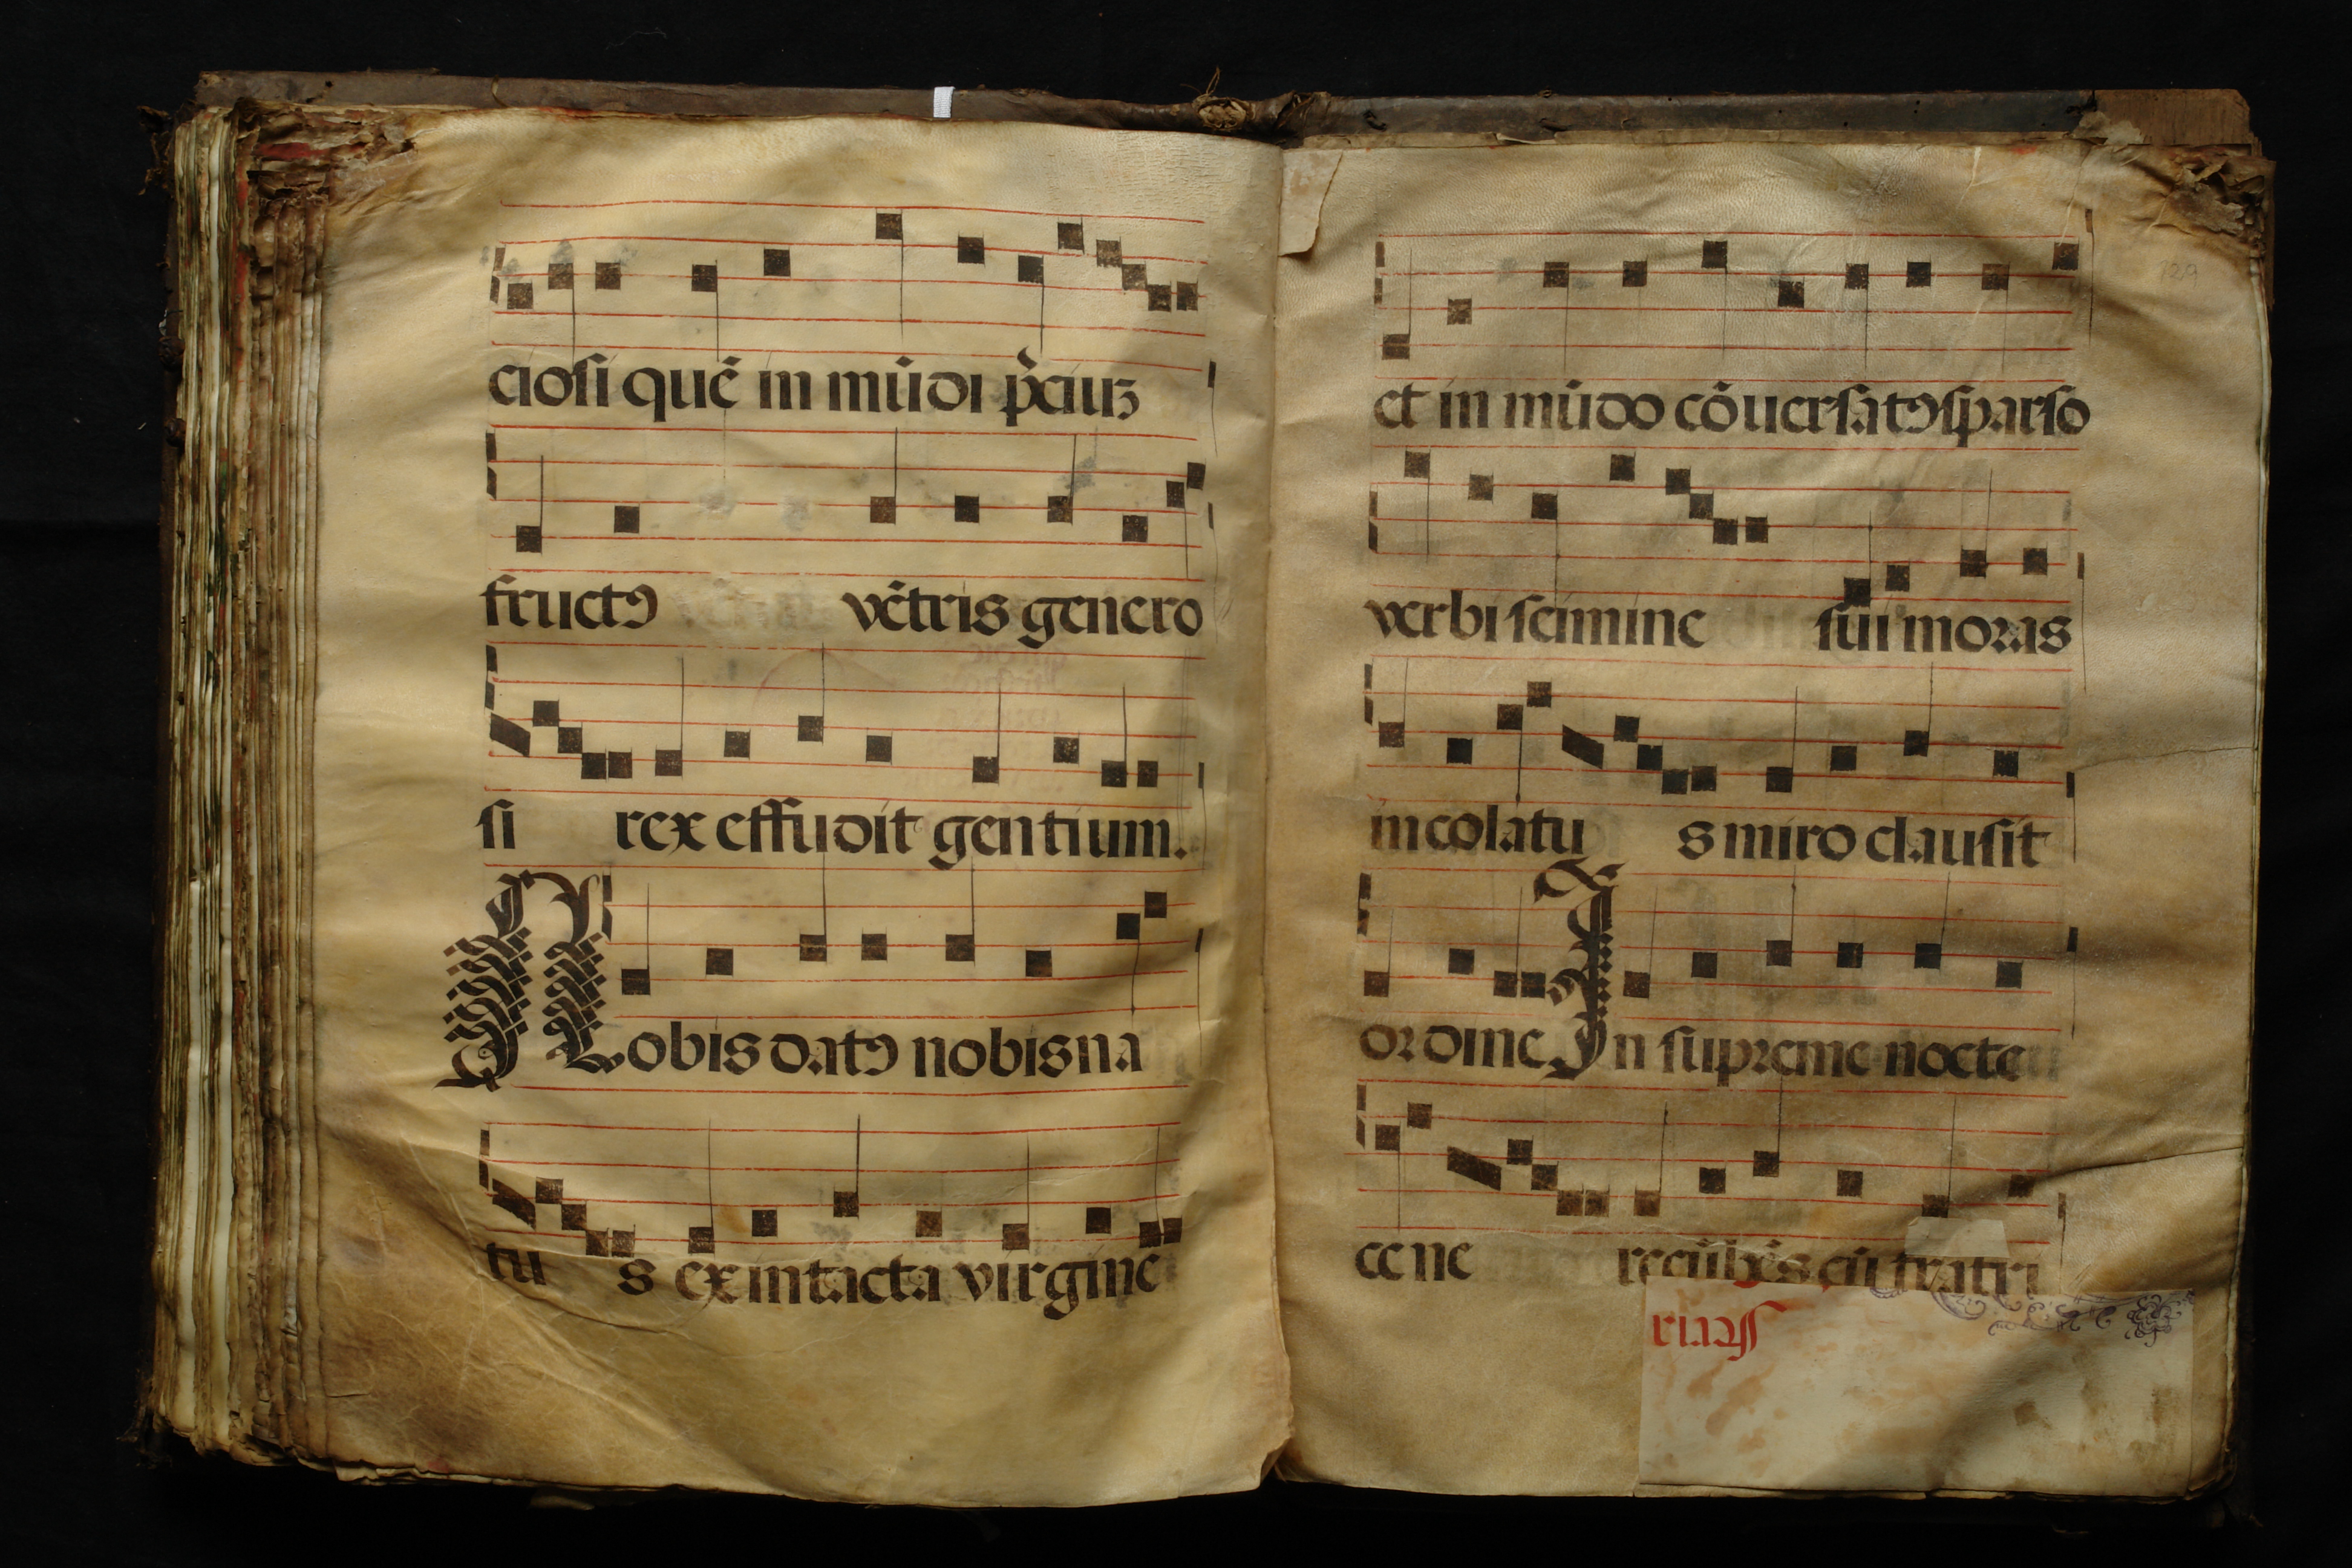 ciosi quē in mūdi p̄ciuꝫ
fructꝰ vētris genero
si rex effudit gentium.
Nobis datꝰ nobis na
tu s ex intacta virgine
129
et in mūdo cōuersatꝰ sparso
verbi semine sui moras
incolatu s miro clausit
ordine In supreme nocte
cene recūbēs cū fratri
feria